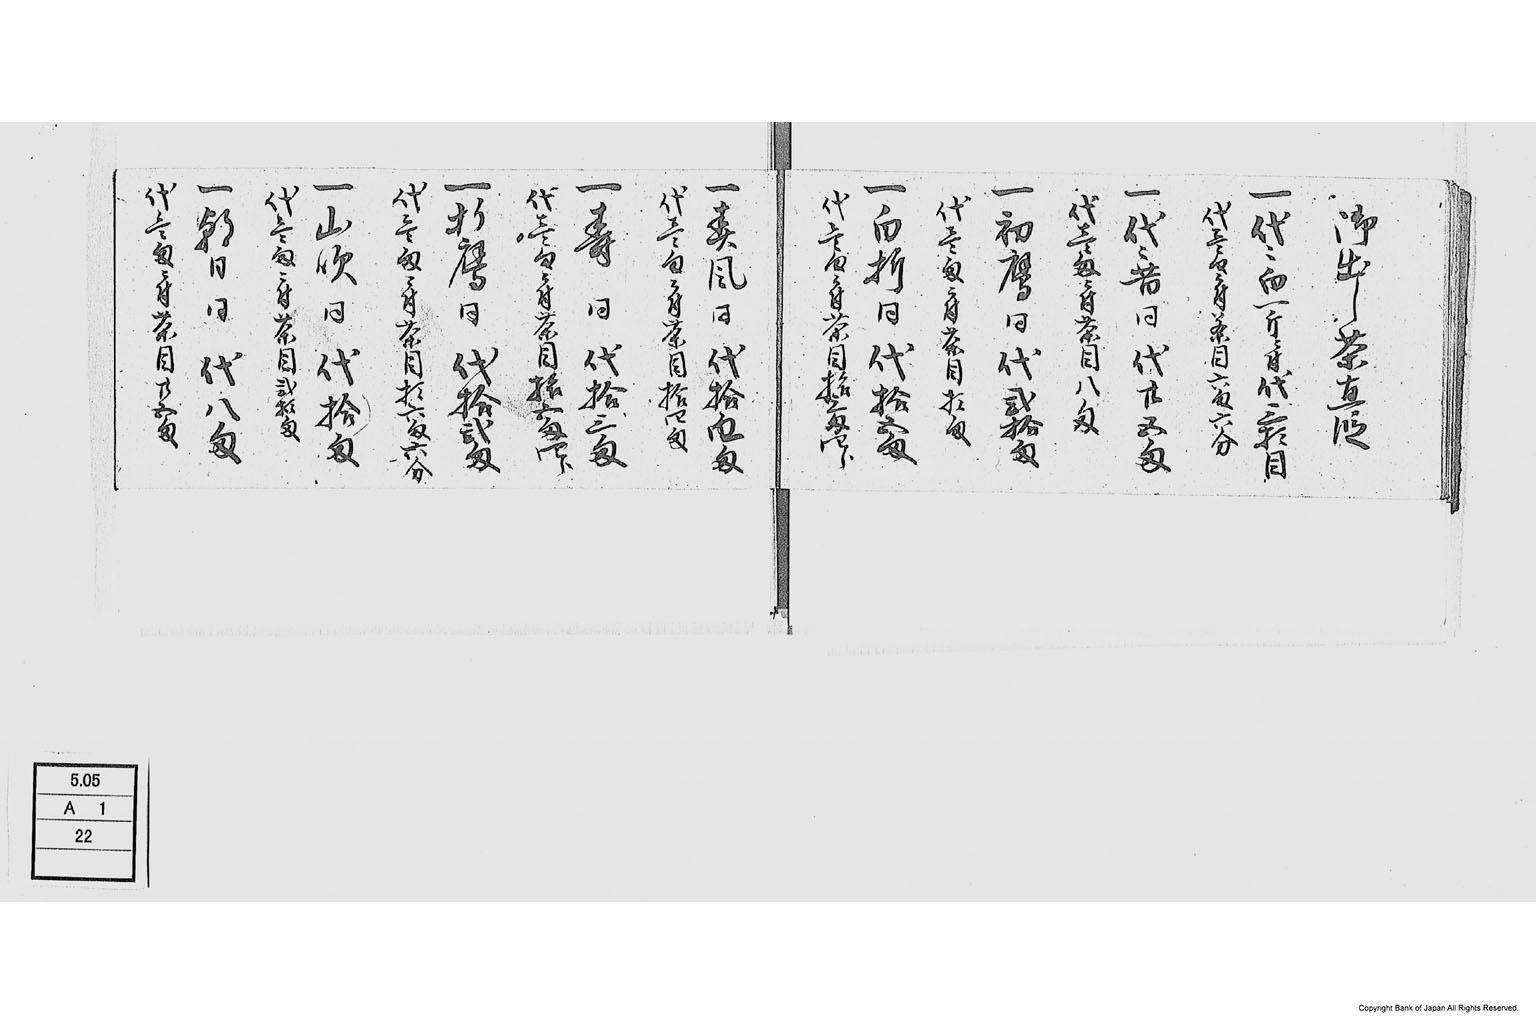 御出し茶直段
一代〻白一斤ニ付代三拾目
代壱匁ニ付茶目六匁六分
一代〻昔同代廿五匁
代壱匁ニ付茶目八匁
一初鷹同代弐拾匁
代壱匁ニ付茶目拾匁
一白折同代拾五匁
代壱匁ニ付茶目拾三匁四分
一春風同代拾四匁
代壱匁ニ付茶目拾四匁
一寿同代拾三匁
代壱匁ニ付茶目拾五匁四分
一折鷹同代拾弐匁
代壱匁ニ付茶目拾六匁六分
一山吹同代拾匁
代壱匁ニ付茶目弐拾匁
一朝日同代八匁
代壱匁ニ付茶目廿五匁
5.05
A 1
22
Copyright Bank of Japan All Rights Reserved.